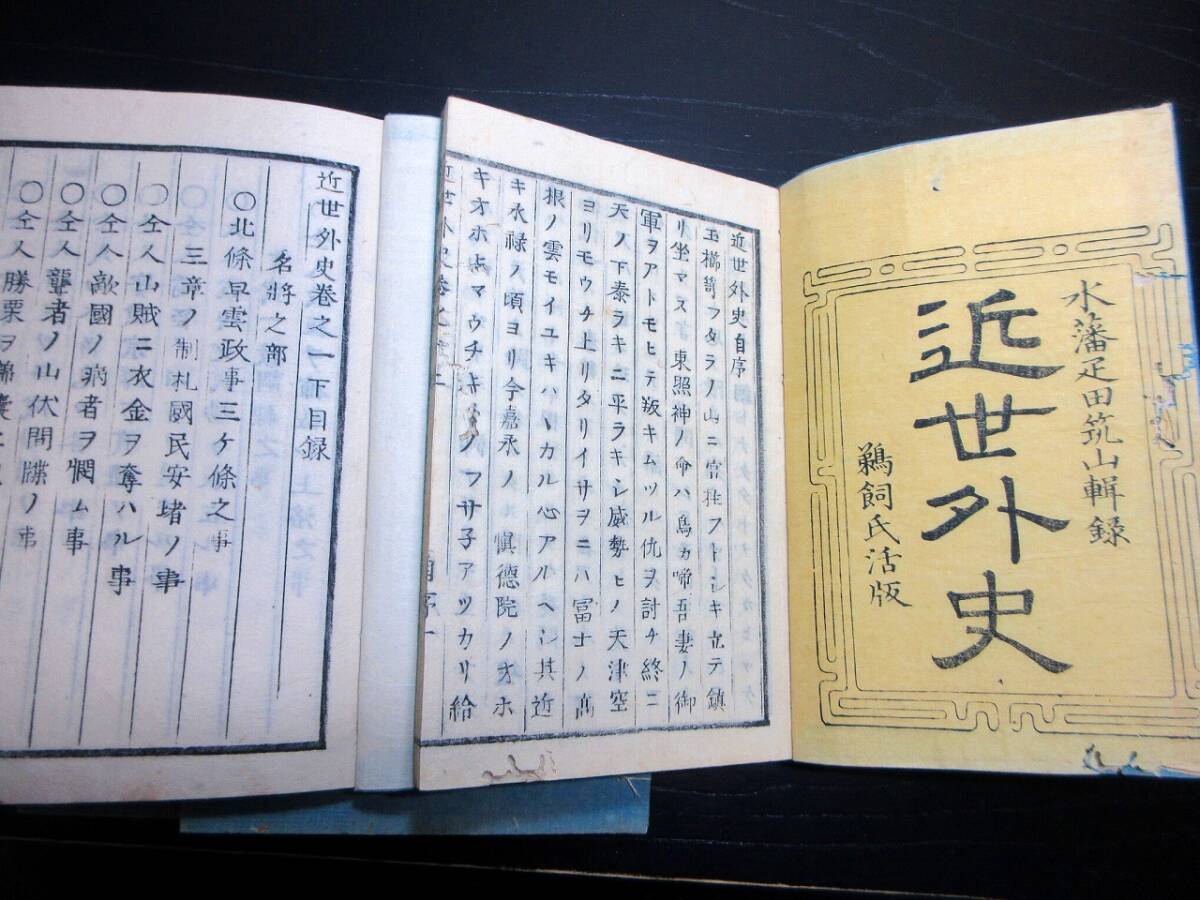 水藩疋田筑山輯録
近世外史
鵜飼氏活版
近世外史自序
玉櫛笥フタラノ山ニ宮柱フトシキ立テ鎮
リ坐マス東照神ノ命ハ鳥カ啼吾妻ノ御
軍ヲアトモヒテ叛キムツル仇ヲ討チ終ニ
天ノ下泰ラキニ平ラキシ威勢ヒノ天津空
ヨリモウチ上リタリイサヲニハ冨士ノ高
根ノ雲モイユキハヽカル心アルヘシ其近
キ水禄ノ頃ヨリ今嘉永ノ愼德院ノオホ
キオホ マウチキ ノフサ子アツカリ給
自序一
近世外史卷之一下目録
名將之部
〇北條早雲政事三ケ條之事
三章ノ制札國民安堵ノ事
〇仝人山賊ニ衣金ヲ奪ハル事
〇仝人敵國ノ病者ヲ憫ム事
〇仝人聾者ノ山伏間牒ノ事
〇仝人勝栗ヲ